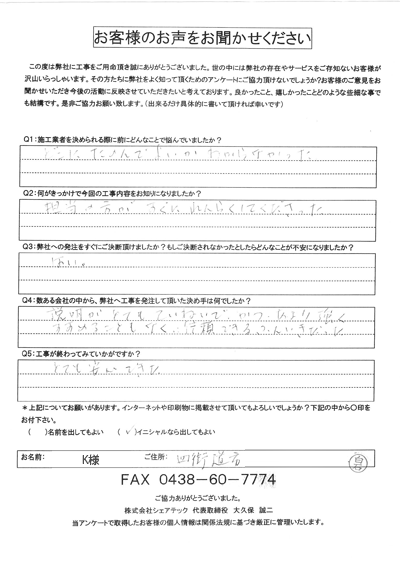 お客様のお声をお聞かせください
この度は弊社に工事をご用命頂き誠にありがとうございました。世の中には弊社の存在やサービスをご存知ないお客様が
沢山いらっしゃいます。その方たちに弊社をよく知って頂くためのアンケートにご協力頂けないでしょうか?お客様のご意見をお
聞かせいただき今後の活動に反映させていただきたいと考えております。良かったこと、嬉しかったことどのような些細な事で
も結構です。是非ご協力お願い致します。(出来るだけ具体的に書いて頂ければ幸いです)
Q1:施工業者を決められる際に前にどんなことで悩んでいましたか?
たのんでよいかわからなかった
Q2:何がきっかけで今回の工事内容をお知りになりましたか?
担当の方がすぐにれんらくをくださった
Q3:弊社への発注をすぐにご決断頂けましたか?もしご決断されなかったとしたらどんなことが不安になりましたか?
はい。
Q4:数ある会社の中から、弊社へ工事を発注して頂いた決め手は何でしたか?
説明がとてもていねいで、かつ、あまり強く
すすめることもなく、信頼できるふんいきだった
Q5:工事が終わってみていかがですか?
とても安心できた
*上記についてお願いがあります。インターネットや印刷物に掲載させて頂いてもよろしいでしょうか?下記の中から〇印を
お付下さい。
( )名前を出してもよい (✓)イニシャルなら出してもよい
お名前: K様 ご住所: 四街道市
FAX 0438-60-7774
ご協力ありがとうございました。
株式会社シェアテック 代表取締役 大久保 誠二
当アンケートで取得したお客様の個人情報は関係法規に基づき厳正に管理いたします。